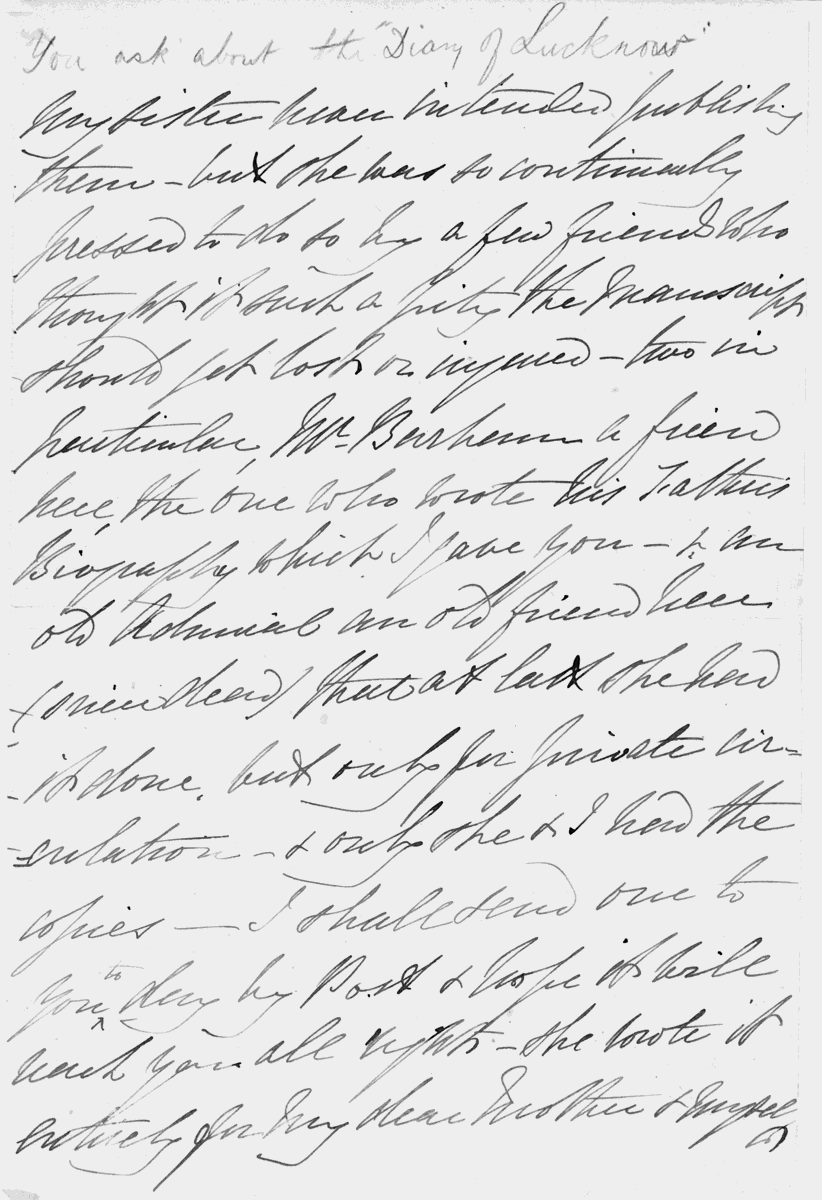 You ask about the "Diary of Lucknow"
My sister never intended publishing
them – but she was so continually
pressed to do so by a few friends who
thought it such a pity the Manuscript
should get lost or injured – two in
particular, Mr. Barham a friend
here, the one who wrote his Fathers
Biography which I gave you – & an
old Admiral an old friend here
(since dead) that at last she had
it done, but only for private cir=
=culation – & only she & I had the
copies — I shall send one to
you to day by Post & hope it will
reach you all right – she wrote it
entirely for my dear Mother & myself